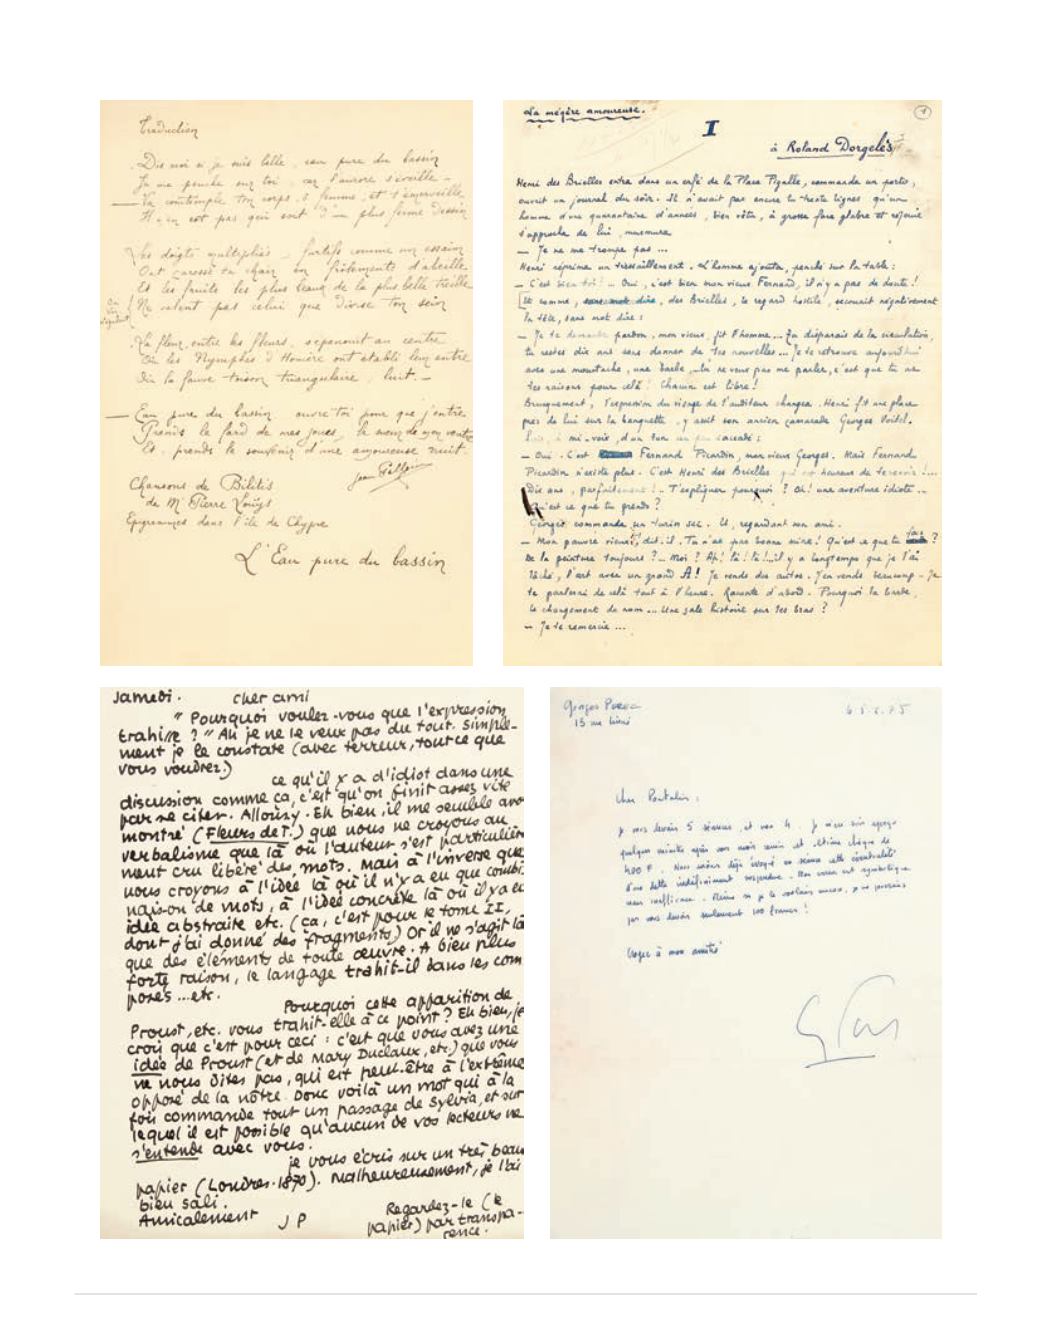 Traduction
Dis moi si je suis belle, eau pure du bassin
Je me penche sur toi, car l'aurore s'éveille
contemple ton corps, ô femme, et t'émerveille
Il n'en est pas qui soit d'un plus ferme dessin
doigts multipliés, furtifs comme un essaim
Ont caressé ta chair en frôlements d'abeille
Et les fruits les plus beaux de la plus belle treille
Ne valent pas celui que divise ton sein
La fleur, entre les fleurs, s'épanouit au centre
Où les Nymphes d'Homère ont établi leur antre
Où la fauve toison triangulaire, luit.
Eau pure du bassin ouvre toi pour que j'entre
Prends le fard de mes joues, de mon ventre
Et prends le souvenir d'une amoureuse nuit.
Jean
Chansons de Bilitis
de Mr Pierre Louÿs
Epigrammes dans l'île de Chypre
L'Eau pure du bassin
La mégère amoureuse.
1
I
à Roland Dorgelès
Henri des Brielles entra dans un café de la Place Pigalle, commanda un porto,
ouvrit un journal du soir. Il n'avait pas encore lu trente lignes qu'un
homme d'une quarantaine d'années, bien vêtu, à grosse face glabre et réjouie
s'approcha de lui, murmura
— Je ne me trompe pas ...
Henri réprima un tressaillement. L'homme ajouta, penché sur la table :
— C'est bien toi ! .. Oui, c'est bien mon vieux Fernand, il n'y a pas de doute !
Et comme, des Brielles, le regard hostile, secouait négativement
la tête, sans mot dire :
— Je te demande pardon, mon vieux, fit l'homme... Tu disparais de la circulation,
tu restes dix ans sans donner de tes nouvelles... Je te retrouve aujourd'hui
avec une moustache, une barbe. Tu ne veux pas me parler, c'est que tu as
tes raisons pour celà ! Chacun est libre !
Brusquement, l'expression du visage de l'auditeur changea. Henri fit une place
près de lui sur la banquette, y assit son ancien camarade Georges Voitel.
Puis, à mi-voix, d'un ton un peu saccadé :
— Oui. C'est Fernand Picardin, mon vieux Georges. Mais Fernand
Picardin n'existe plus. C'est Henri des Brielles qui est heureux de te revoir !...
Dix ans, parfaitement !.. T'expliquer pourquoi ? Oh ! une aventure idiote ...
Qu'est ce que tu prends ?
Georges commanda un turin sec. Et, regardant son ami.
— Mon pauvre vieux, dit-il. Tu n'as pas bonne mine ! Qu'est ce que tu fais ?
De la peinture toujours ? — Moi ? Ah ! là ! là !.. il y a longtemps que je l'ai
lâché, l'art avec un grand A ! Je vends des autos. J'en vends beaucoup - Je
te parlerai de celà tout à l'heure. Raconte d'abord. Pourquoi la barbe,
le changement de nom... Une sale histoire sur les bras ?
— Je te remercie ...
Samedi. cher ami
" Pourquoi voulez-vous que l'expression
trahisse ? " Ah je ne le veux pas du tout. Simple-
ment je le constate (avec terreur, tout ce que
vous voudrez.)
ce qu'il y a d'idiot dans une
discussion comme ça, c'est qu'on finit assez vite
par se citer. Allons-y. Eh bien, il me semble avo
montré (Fleurs de T.) que nous ne croyons au
verbalisme que là où l'auteur s'est particulièr
ment cru libéré des mots. Mais à l'inverse que
nous croyons à l'idée là où il n'y a eu que combi
naison de mots, à l'idée concrète là où il y a eu
idée abstraite etc. (ça, c'est pour le tome II,
dont j'ai donné des fragments) Or il ne s'agit là
que des éléments de toute œuvre. A bien plus
forte raison, le langage trahit-il dans les com
posés ...etc.
Pourquoi cette apparition de
Proust, etc. vous trahit-elle à ce point ? Eh bien, je
crois que c'est pour ceci : c'est que vous avez une
idée de Proust (et de Mary Duclaux, etc.) que vous
ne nous dites pas, qui est peut-être à l'extrême
opposé de la nôtre. Donc voilà un mot qui à la
fois commande tout un passage de Sylvia, et sur
lequel il est possible qu'aucun de vos lecteurs ne
s'entende avec vous.
je vous écris sur un très beau
papier (Londres-1870). Malheureusement, je l'ai
bien sali.
Amicalement
J P
Regardez-le (le
papier) par transpa-
rence.
Georges Perec
13 rue Linné
75
Cher Pontalis,
je vous devais 5 séances, et non 4. Je m'en suis aperçu
quelques minutes après vous avoir remis chèque de
400 F. Nous avions déjà évoqué en séance cette éventualité
d'une dette indéfiniment suspendue.
je ne pourrais
pas vous devoir seulement 100 francs !
Croyez à mon amitié